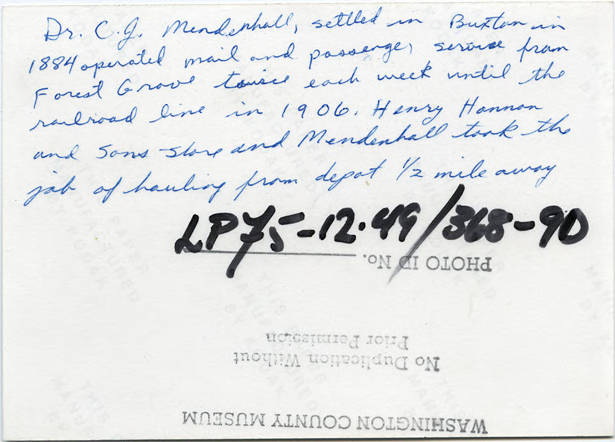 Dr. C.J. Mendenhall, settled in Buxton in
1884 operated mail and passenger service from
Forest Grove twice each week until the
railroad line in 1906. Henry Hannan
and Sons store and Mendenhall took the
job of hauling from depot 1/2 mile away
LP75-12.49/368-90
PHOTO ID No.
No Duplication Without
Prior Permission
WASHINGTON COUNTY MUSEUM